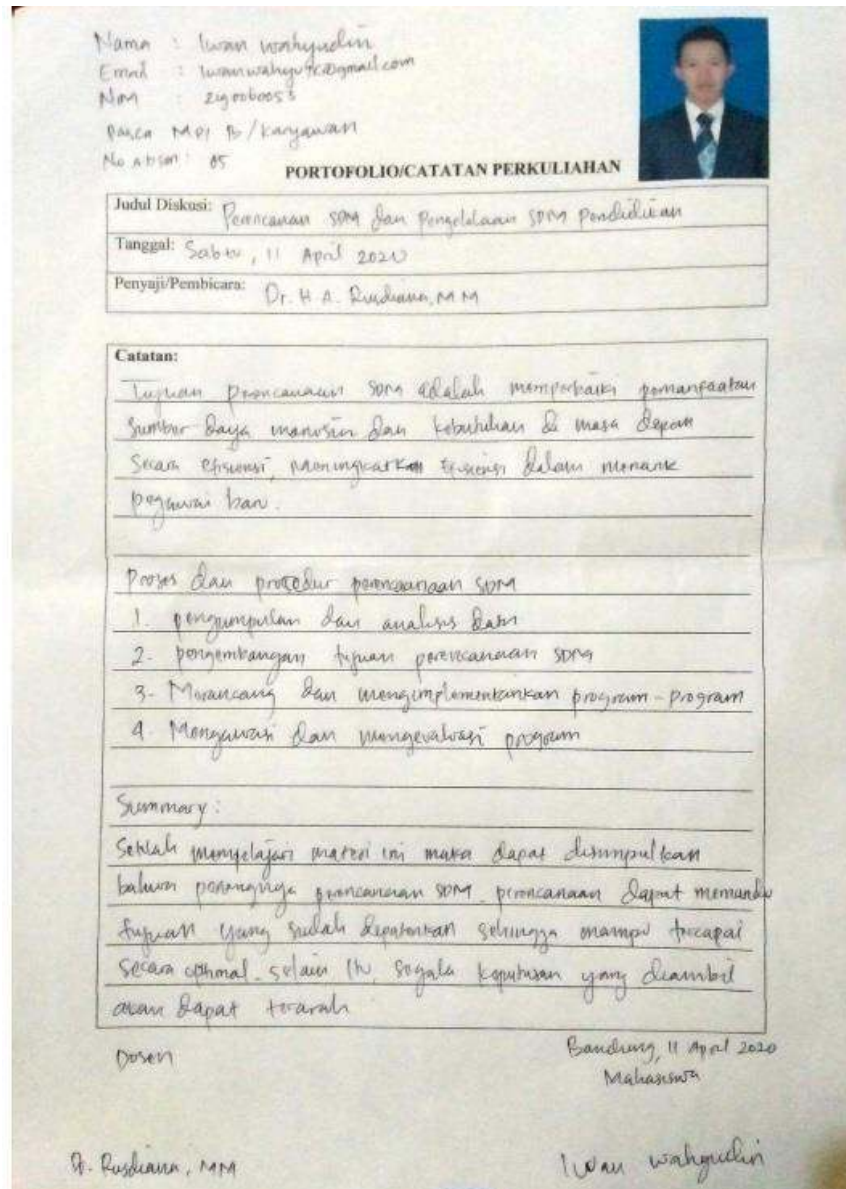 Nama : Iwan wahyudin
Email : iwanwahyu9k@gmail.com
Nim : 2190060053
Pasca MPI B / Karyawan
No Absen : 05
PORTOFOLIO/CATATAN PERKULIAHAN
Judul Diskusi: Perencanaan SDM dan Pengelolaan SDM Pendidikan
Tanggal: Sabtu, 11 April 2020
Penyaji/Pembicara: Dr. H A. Rusdiana, MM
Catatan:
Tujuan perencanaan SDM adalah memperbaiki pemanfaatan
Sumber daya manusia dan kebutuhan di masa depan
Secara efisiensi, Meningkatkan efisiensi dalam menarik
pegawai baru.
Proses dan prosedur perencanaan SDM
1. pengumpulan dan analisis data
2. pengembangan tujuan perencanaan SDM
3. Merancang dan mengimplementasikan program-program
4. Mengawasi dan mengevaluasi program
Summary :
Setelah mempelajari materi ini maka dapat disimpulkan
bahwa pentingnya perencanaan SDM. perencanaan dapat memandu
tujuan yang sudah ditentukan sehingga mampu tercapai
secara optimal. selain itu, segala keputusan yang diambil
akan dapat terarah
Dosen
Bandung, 11 April 2020
Mahasiswa
Rusdiana, MM
Iwan wahyudin